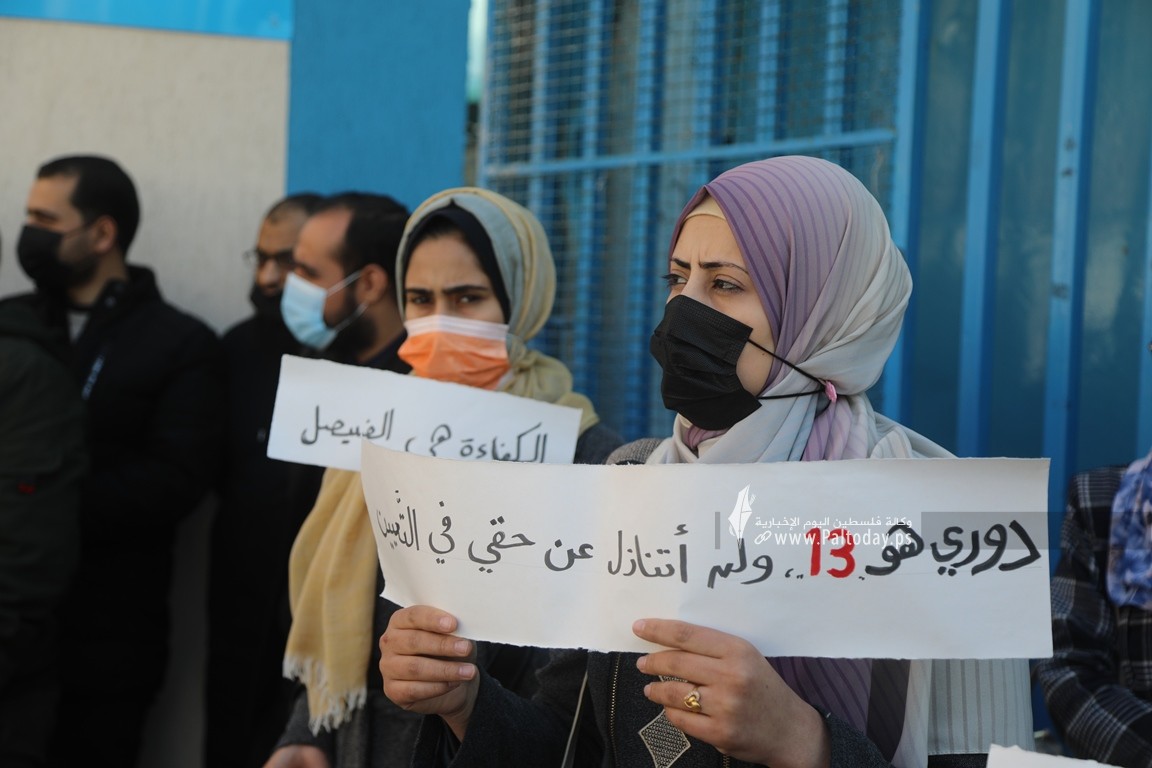 الكفاءة هي الفيصل
دوري هو 13 ,, ولن أتنازل عن حقي في التَّعيين
وكالة فلسطين اليوم الإخبارية
www.Paltoday.ps